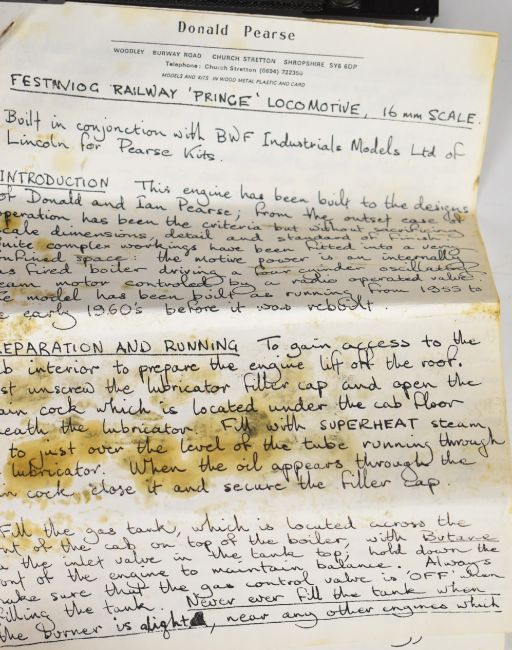 Donald Pearse
WOODLEY BURWAY ROAD CHURCH STRETTON SHROPSHIRE SY6 6DP
Telephone: Church Stretton (0694) 722350
MODELS AND KITS IN WOOD METAL PLASTIC AND CARD
FESTINIOG RAILWAY 'PRINCE' LOCOMOTIVE, 16 mm SCALE.
Built in conjunction with BWF Industrials Models Ltd of
Lincoln for Pearse Kits.
INTRODUCTION This engine has been built to the designs
of Donald and Ian Pearse; from the outset ease of
operation has been the criteria but without sacrificing
scale dimensions, detail and standard of finish.
quite complex workings have been fitted into a very
confined space: the motive power is an internally
gas fired boiler driving a four cylinder oscillating
steam motor controled by a radio operated valve
e model has been built as running from 1955 to
e early 1960's before it was rebuilt.
REPARATION AND RUNNING To gain access to the
b interior to prepare the engine lift off the roof.
st unscrew the lubricator filler cap and open the
ain cock which is located under the cab floor
neath the lubricator. Fill with SUPERHEAT steam
to just over the level of the tube running through
lubricator. When the oil appears through the
n cock, close it and secure the filler cap.
Fill the gas tank, which is located across the
nt of the cab on top of the boiler, with Butane
the inlet valve in the tank top; hold down the
ont of the engine to maintain balance. Always
make sure that the gas control valve is 'OFF' when
filling the tank. Never ever fill the tank when
the burner is alight, near any other engines which